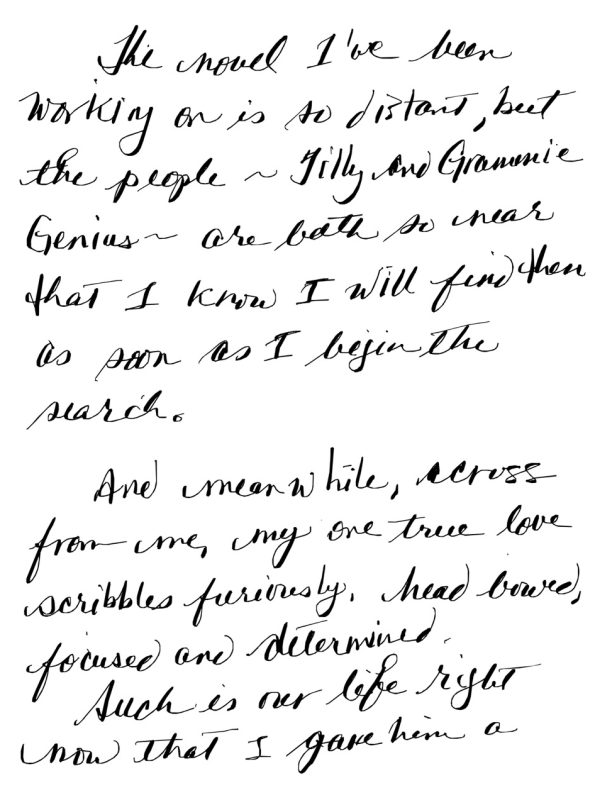 The novel I've been
working on is so distant, but
the people ~ Tilly and Grammie
Genius ~ are both so near
that I know I will find them
as soon as I begin the
search.
And meanwhile, across
from me, my one true love
scribbles furiously, head bowed,
focused and determined.
Such is our life right
now that I gave him a